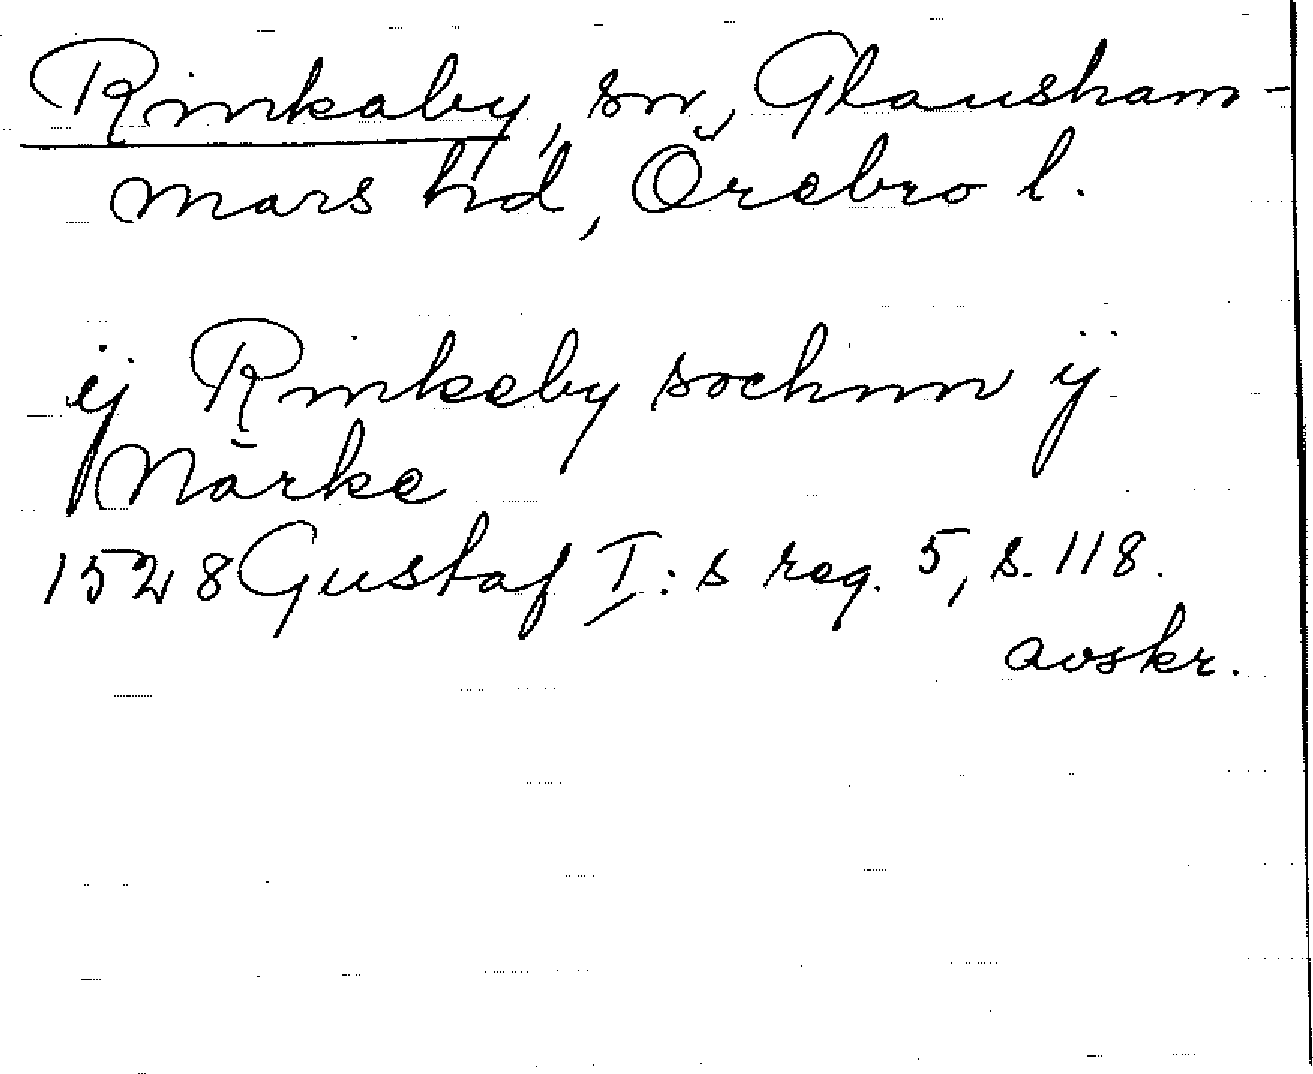 Rinkaby, sn, Glansham-
mars hd, Örebro l.
ij Rinkeby sochnn ij
Närke
1528 Gustaf I:s reg. 5, s. 118.
avskr.